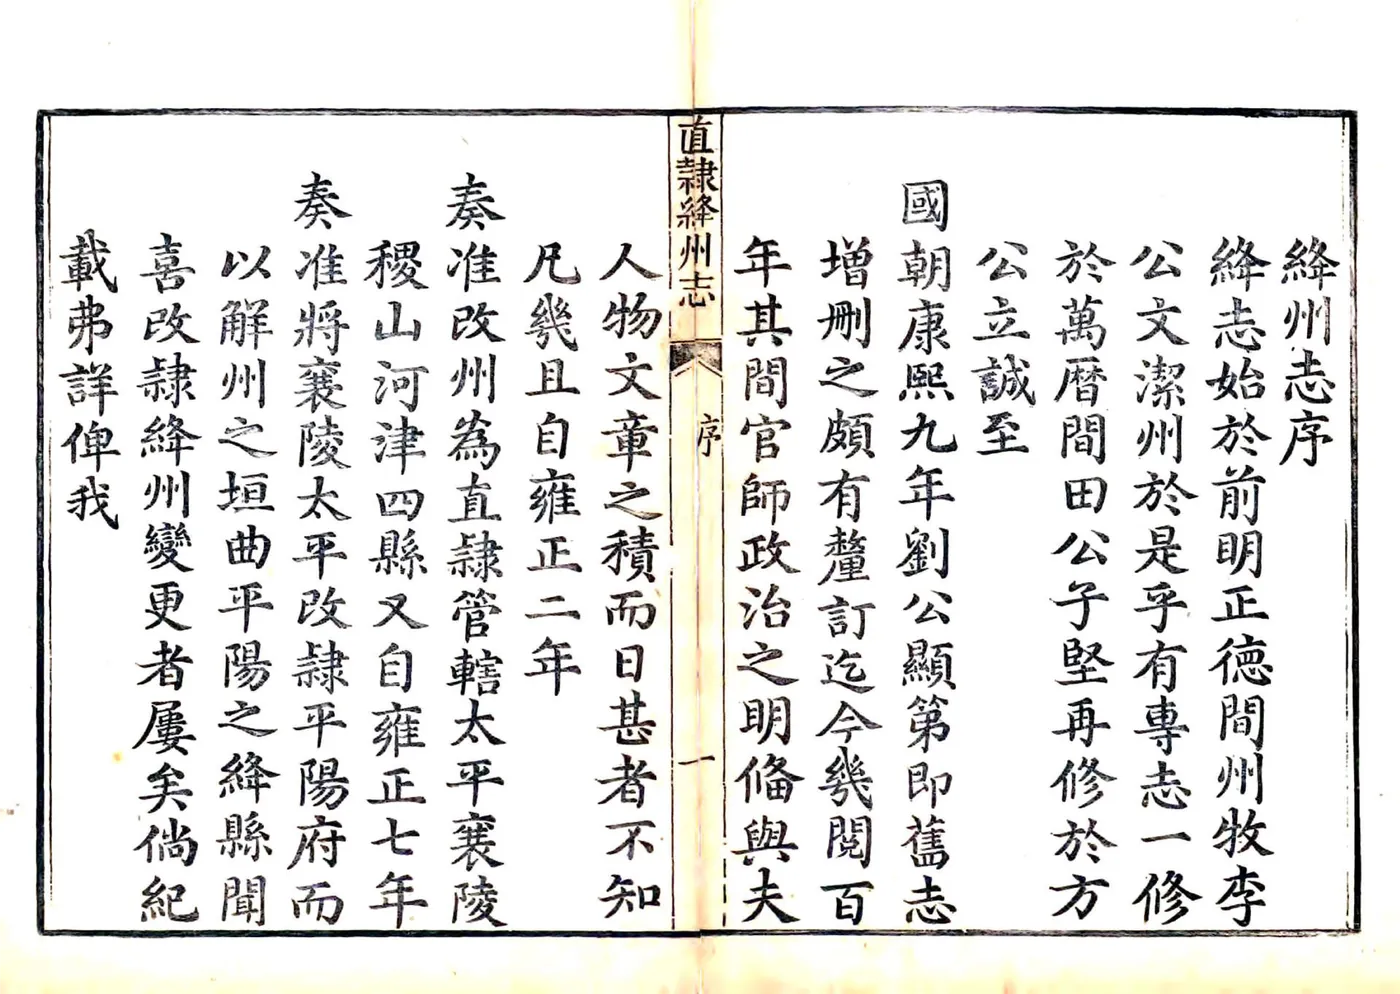 絳州志序
絳志始於前明正德間州牧李
公文潔州於是乎有專志一修
於萬曆間田公子堅再修於方
公立誠至
國朝康熙九年劉公顯第即舊志
增刪之頗有釐訂迄今幾閱百
年其間官師政治之明偹與夫
直隸絳州志
序
一
人物文章之積而日甚者不知
凡幾且自雍正二年
奏准改州為直隸管轄太平襄陵
稷山河津四縣又自雍正七年
奏准將襄陵太平改隸平陽府而
以解州之垣曲平陽之絳縣聞
喜改隸絳州變更者屢矣倘紀
載弗詳俾我